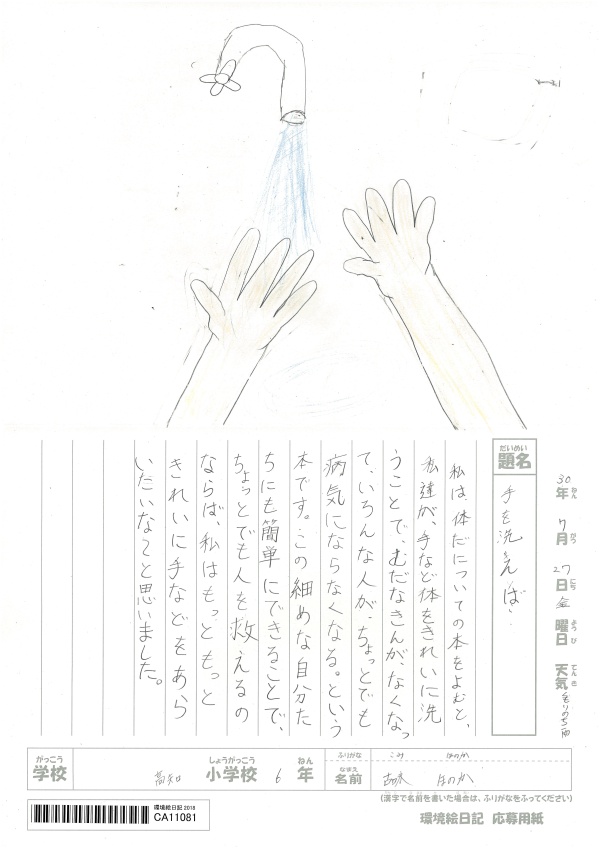 30年ねん 7月がつ 27日にち 金曜日ようび 天気てんき
だいめい
題名
手を洗えば…
私は、体だについての本をよむと、
私達が、手など体をきれいに洗
うことで、むだなきんが、なくなっ
て、いろんな人が、ちょっとでも
病気にならなくなる。という
本です。この細めな自分た
ちにも簡単にできることで、
ちょっとでも人を救えるの
ならば、私はもっともっと
きれいに手などをあら
いたいな〜と思いました。
がっこう
学校
高知
しょうがっこう
小学校
6
ねん
年
ふりがな
こみ ほのか
なまえ
名前
ほのか
(漢字で名前を書いた場合は、ふりがなをふってください)
環境絵日記 応募用紙
環境絵日記2018
CA11081